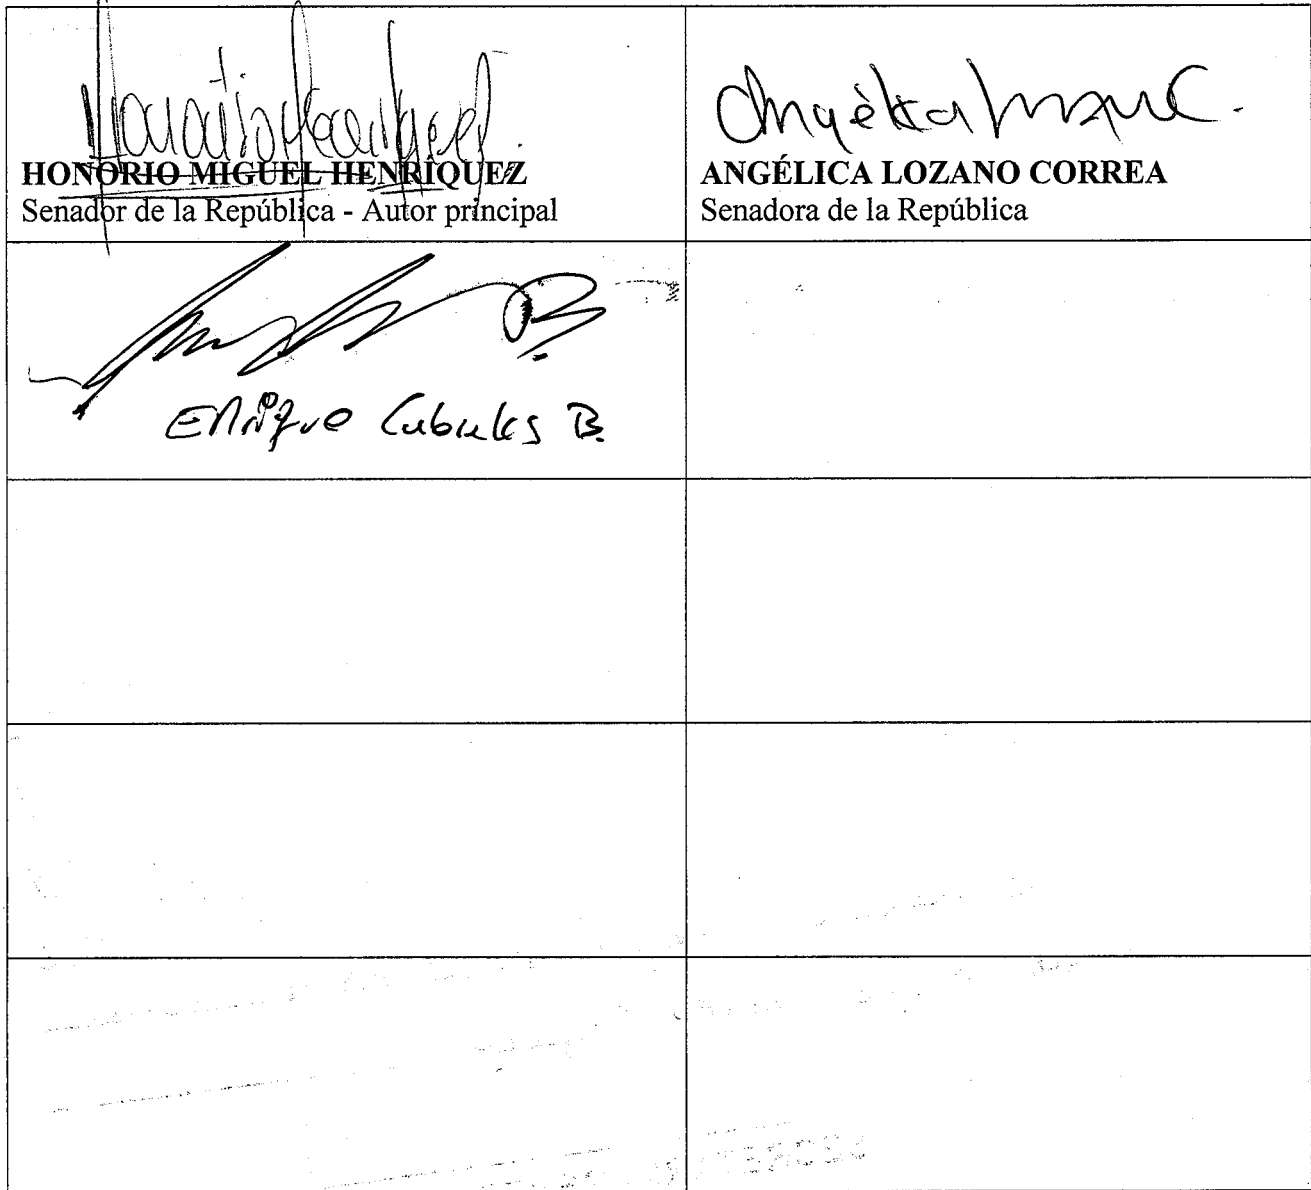 HONORIO MIGUEL HENRÍQUEZ
Senador de la República - Autor principal
Angélica Lozano C.
ANGÉLICA LOZANO CORREA
Senadora de la República
Enrique Cabrales B.